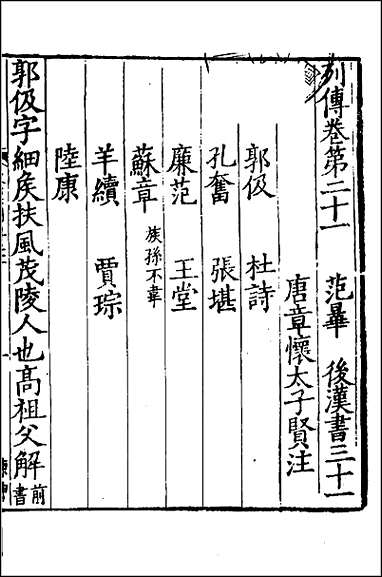 列傳卷第二十一 范曄 後漢書三十一
唐章懷太子賢注
郭伋 杜詩
孔奮 張堪
廉范 王堂
蘇章 族孫不韋
羊續 賈琮
陸康
郭伋字細侯扶風茂陵人也高祖父解前書